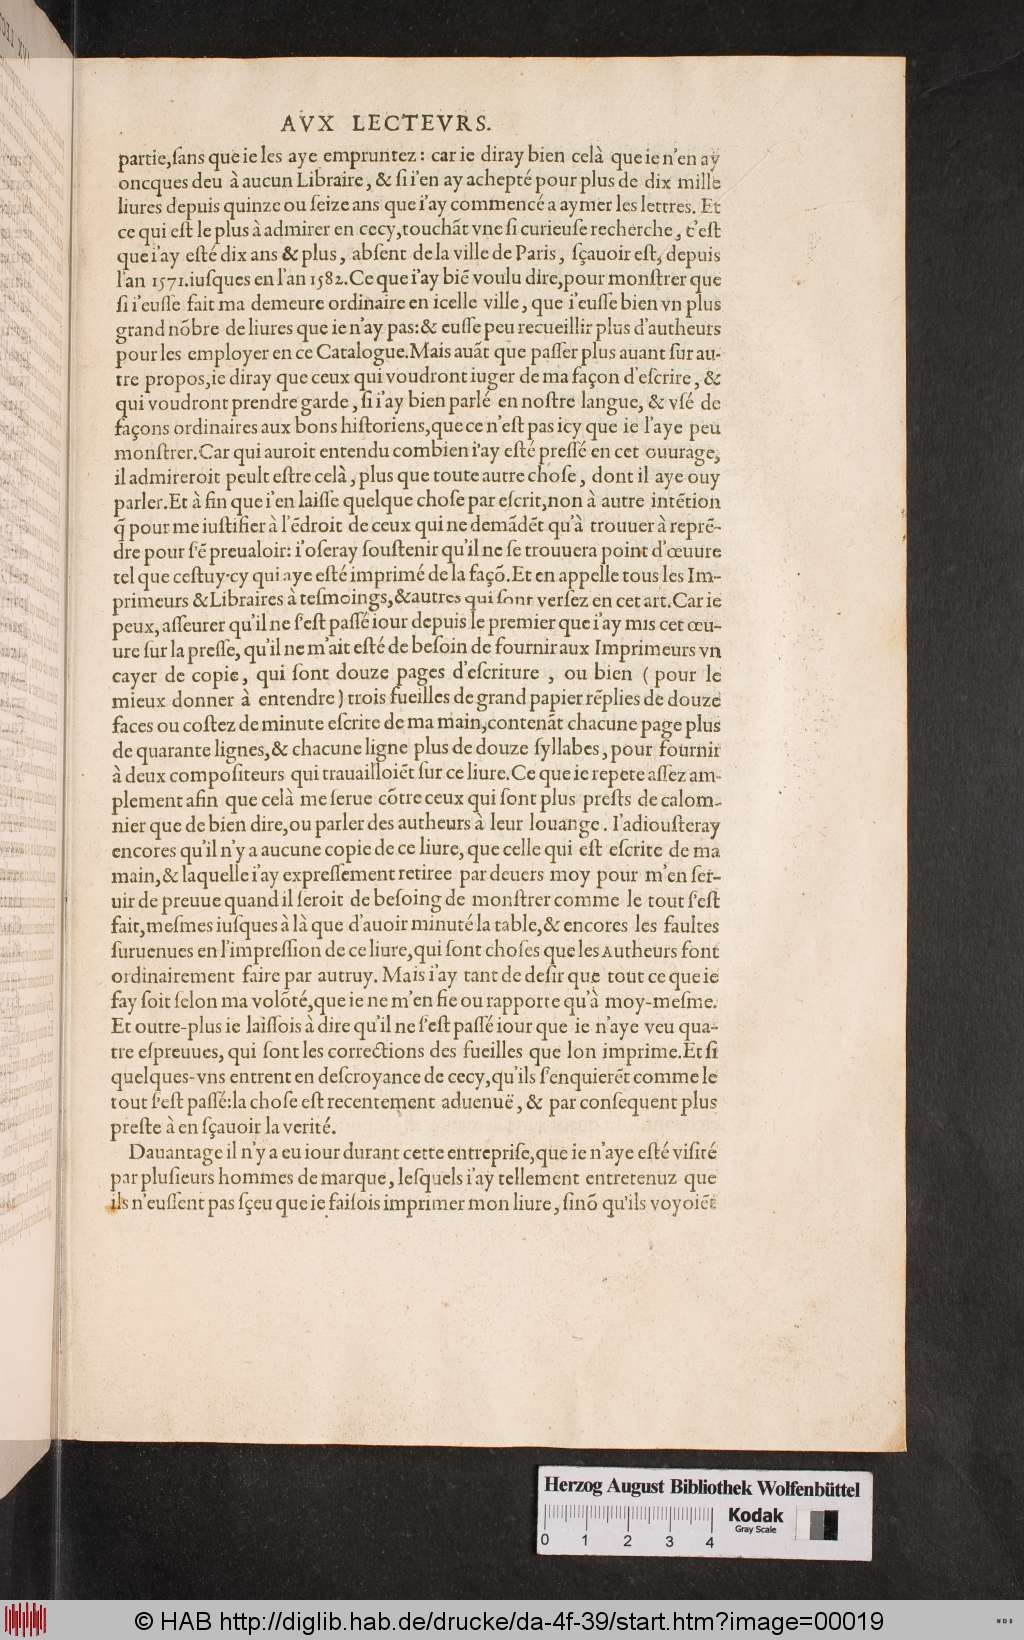 AVX LECTEVRS.
partie,ſans que ie les aye empruntez: car ie diray bien celà que ie n'en ay
oncques deu à aucun Libraire, & ſi i'en ay achepté pour plus de dix mille
liures depuis quinze ou ſeize ans que i'ay commencé a aymer les lettres. Et
ce qui eſt le plus à admirer en cecy,touchãt vne ſi curieuſe recherche, c'eſt
que i'ay eſté dix ans & plus, abſent de la ville de Paris, ſçauoir eſt, depuis
l'an 1571.iuſques en l'an 1582.Ce que i'ay biẽ voulu dire,pour monſtrer que
ſi i'euſſe fait ma demeure ordinaire en icelle ville, que i'euſſe bien vn plus
grand nõbre de liures que ie n'ay pas:& euſſe peu recueillir plus d'autheurs
pour les employer en ce Catalogue.Mais auãt que paſſer plus auant ſur au-
tre propos,ie diray que ceux qui voudront iuger de ma façon d'eſcrire, &
qui voudront prendre garde, ſi i'ay bien parlé en noſtre langue, & vſé de
façons ordinaires aux bons hiſtoriens,que ce n'eſt pas icy que ie l'aye peu
monſtrer.Car qui auroit entendu combien i'ay eſté preſſé en cet ouurage,
il admireroit peult eſtre celà, plus que toute autre choſe, dont il aye ouy
parler.Et à fin que i'en laiſſe quelque choſe par eſcrit,non à autre intẽtion
q̃ pour me iuſtifier à l'ẽdroit de ceux qui ne demãdẽt qu'à trouuer à reprẽ-
dre pour s'ẽ preualoir: i'oſeray ſouſtenir qu'il ne ſe trouuera point d'œuure
tel que ceſtuy-cy qui aye eſté imprimé de la façõ.Et en appelle tous les Im-
primeurs & Libraires à teſmoings,& autres qui ſont verſez en cet art.Car ie
peux, aſſeurer qu'il ne s'eſt paſſé iour depuis le premier que i'ay mis cet œu-
ure ſur la preſſe, qu'il ne m'ait eſté de beſoin de fournir aux Imprimeurs vn
cayer de copie, qui ſont douze pages d'eſcriture , ou bien ( pour le
mieux donner à entendre) trois fueilles de grand papier rẽplies de douze
faces ou coſtez de minute eſcrite de ma main,contenãt chacune page plus
de quarante lignes,& chacune ligne plus de douze ſyllabes, pour fournir
à deux compoſiteurs qui trauailloiẽt ſur ce liure.Ce que ie repete aſſez am-
plement afin que celà me ſerue cõtre ceux qui ſont plus preſts de calom-
nier que de bien dire,ou parler des autheurs à leur louange. I'adiouſteray
encores qu'il n'y a aucune copie de ce liure, que celle qui eſt eſcrite de ma
main,& laquelle i'ay expreſſement retiree par deuers moy pour m'en ſer-
uir de preuue quand il ſeroit de beſoing de monſtrer comme le tout s'eſt
fait, meſmes iuſques à là que d'auoir minuté la table,& encores les faultes
ſuruenues en l'impreſſion de ce liure,qui ſont choſes que les Autheurs font
ordinairement faire par autruy. Mais i'ay tant de deſir que tout ce que ie
fay ſoit ſelon ma volõté,que ie ne m'en fie ou rapporte qu'à moy-meſme.
Et outre-plus ie laiſſois à dire qu'il ne s'eſt paſſé iour que ie n'aye veu qua-
tre eſpreuues, qui ſont les corrections des fueilles que lon imprime.Et ſi
quelques-vns entrent en deſcroyance de cecy,qu'ils s'enquierẽt comme le
tout s'eſt paſſé:la choſe eſt recentement aduenuë, & par conſequent plus
preſte à en ſçauoir la verité.
Dauantage il n'y a eu iour durant cette entrepriſe,que ie n'aye eſté viſité
par pluſieurs hommes de marque, leſquels i'ay tellement entretenuz que
ils n'euſſent pas ſçeu que ie faiſois imprimer mon liure, ſinõ qu'ils voyoiẽt
Herzog August Bibliothek Wolfenbüttel
Kodak
Gray Scale
0 1 2 3 4
© HAB http://diglib.hab.de/drucke/da-4f-39/start.htm?image=00019